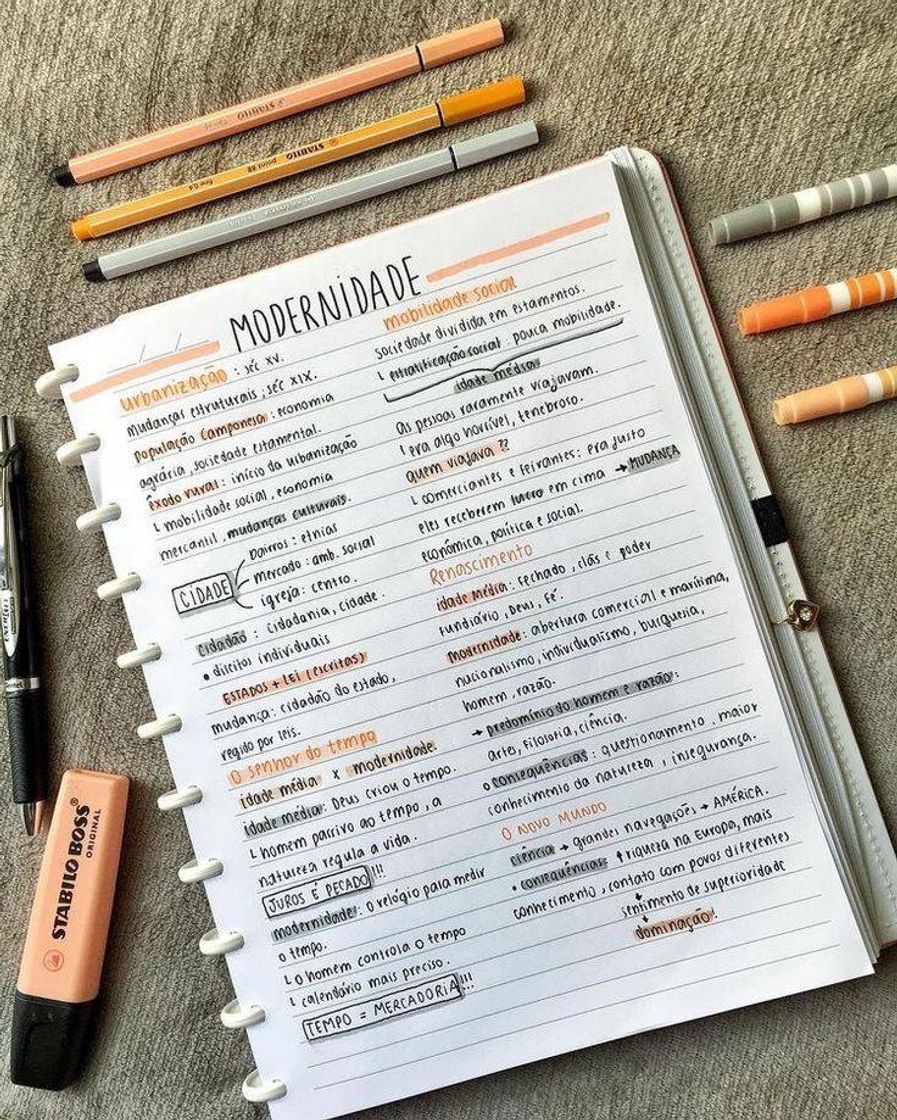 STABILO
STABILO point 88 fine 0.4
MODERNIDADE
urbanização : séc XV.
mudanças estruturais ; séc XIX.
população camponesa : economia
agrária , sociedade estamental.
êxodo rural : início da urbanização
└ mobilidade social , economia
mercantil , mudanças culturais.
CIDADE
bairros : etnias
mercado : amb. social
igreja : centro.
cidadão : cidadania, cidade.
• direitos individuais
ESTADOS + LEI (escritas)
mudança : cidadão do estado,
regido por leis.
O senhor do tempo
idade média x modernidade.
idade média : Deus criou o tempo.
└ homem passivo ao tempo , a
natureza regula a vida.
JUROS É PECADO !!!
modernidade : o relógio para medir
o tempo.
└ o homem controla o tempo
└ calendário mais preciso.
TEMPO = MERCADORIA !!!
mobilidade social
sociedade dividida em estamentos.
└ estratificação social : pouca mobilidade.
idade média
as pessoas raramente viajavam.
└ era algo horrível, tenebroso.
quem viajava ??
└ comerciantes e feirantes : era justo
eles receberem lucro em cima → MUDANÇA
econômica, política e social.
Renascimento
idade média : fechado , clãs e poder
fundiário , Deus , fé.
Modernidade : abertura comercial e marítima,
nacionalismo, individualismo , burguesia,
homem , razão.
→ predomínio do homem e razão :
arte, filosofia , ciência.
o consequências : questionamento , maior
conhecimento da natureza , insegurança.
O NOVO MUNDO
ciência → grandes navegações → AMÉRICA.
• consequências ↑ riqueza na Europa, mais
conhecimento , contato com povos diferentes
↓
sentimento de superioridade
↓
dominação!
STABILO BOSS®
ORIGINAL